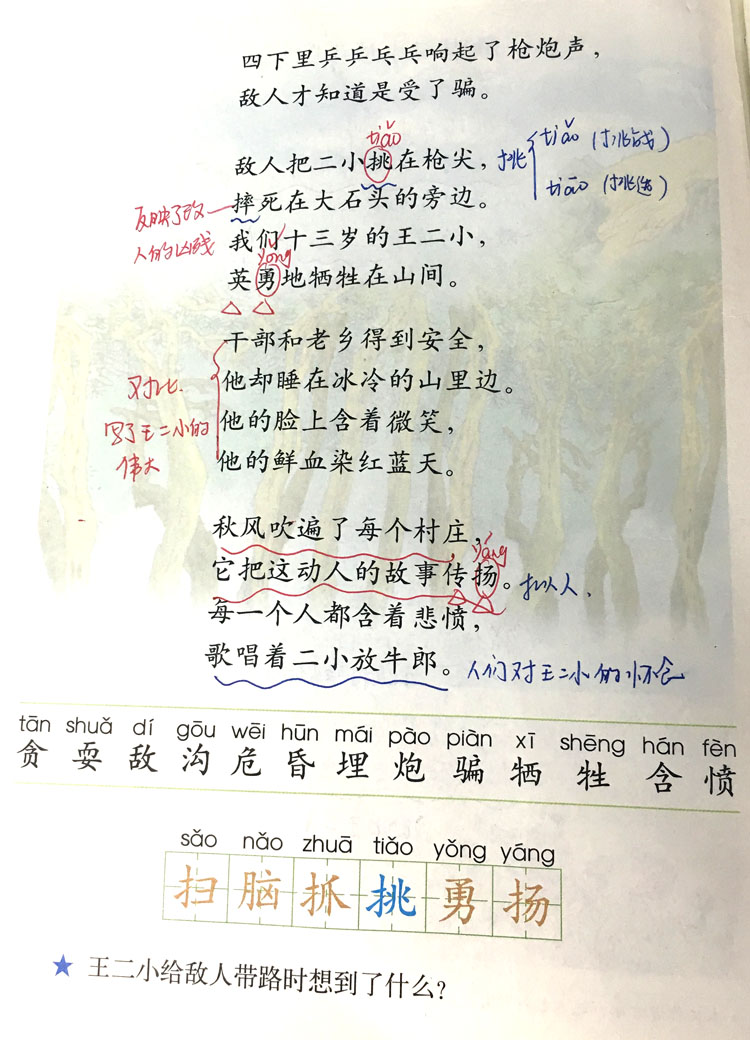 四下里乒乒乓乓响起了枪炮声，
敌人才知道是受了骗。
tiǎo
敌人把二小挑在枪尖，
挑
tiǎo（挑战）
tiāo（挑选）
摔死在大石头的旁边。
反映了敌
人的凶残
我们十三岁的王二小，
yǒng
英勇地牺牲在山间。
干部和老乡得到安全，
他却睡在冰冷的山里边。
他的脸上含着微笑，
他的鲜血染红蓝天。
对比
写了王二小的
伟大
秋风吹遍了每个村庄，
yáng
它把这动人的故事传扬。
拟人、
每一个人都含着悲愤，
歌唱着二小放牛郎。
人们对王二小的怀念
tān shuǎ dí gōu wēi hūn mái pào piàn xī shēng hán fèn
贪 耍 敌 沟 危 昏 埋 炮 骗 牺 牲 含 愤
sǎo nǎo zhuā tiǎo yǒng yáng
扫 脑 抓 挑 勇 扬
★ 王二小给敌人带路时想到了什么？